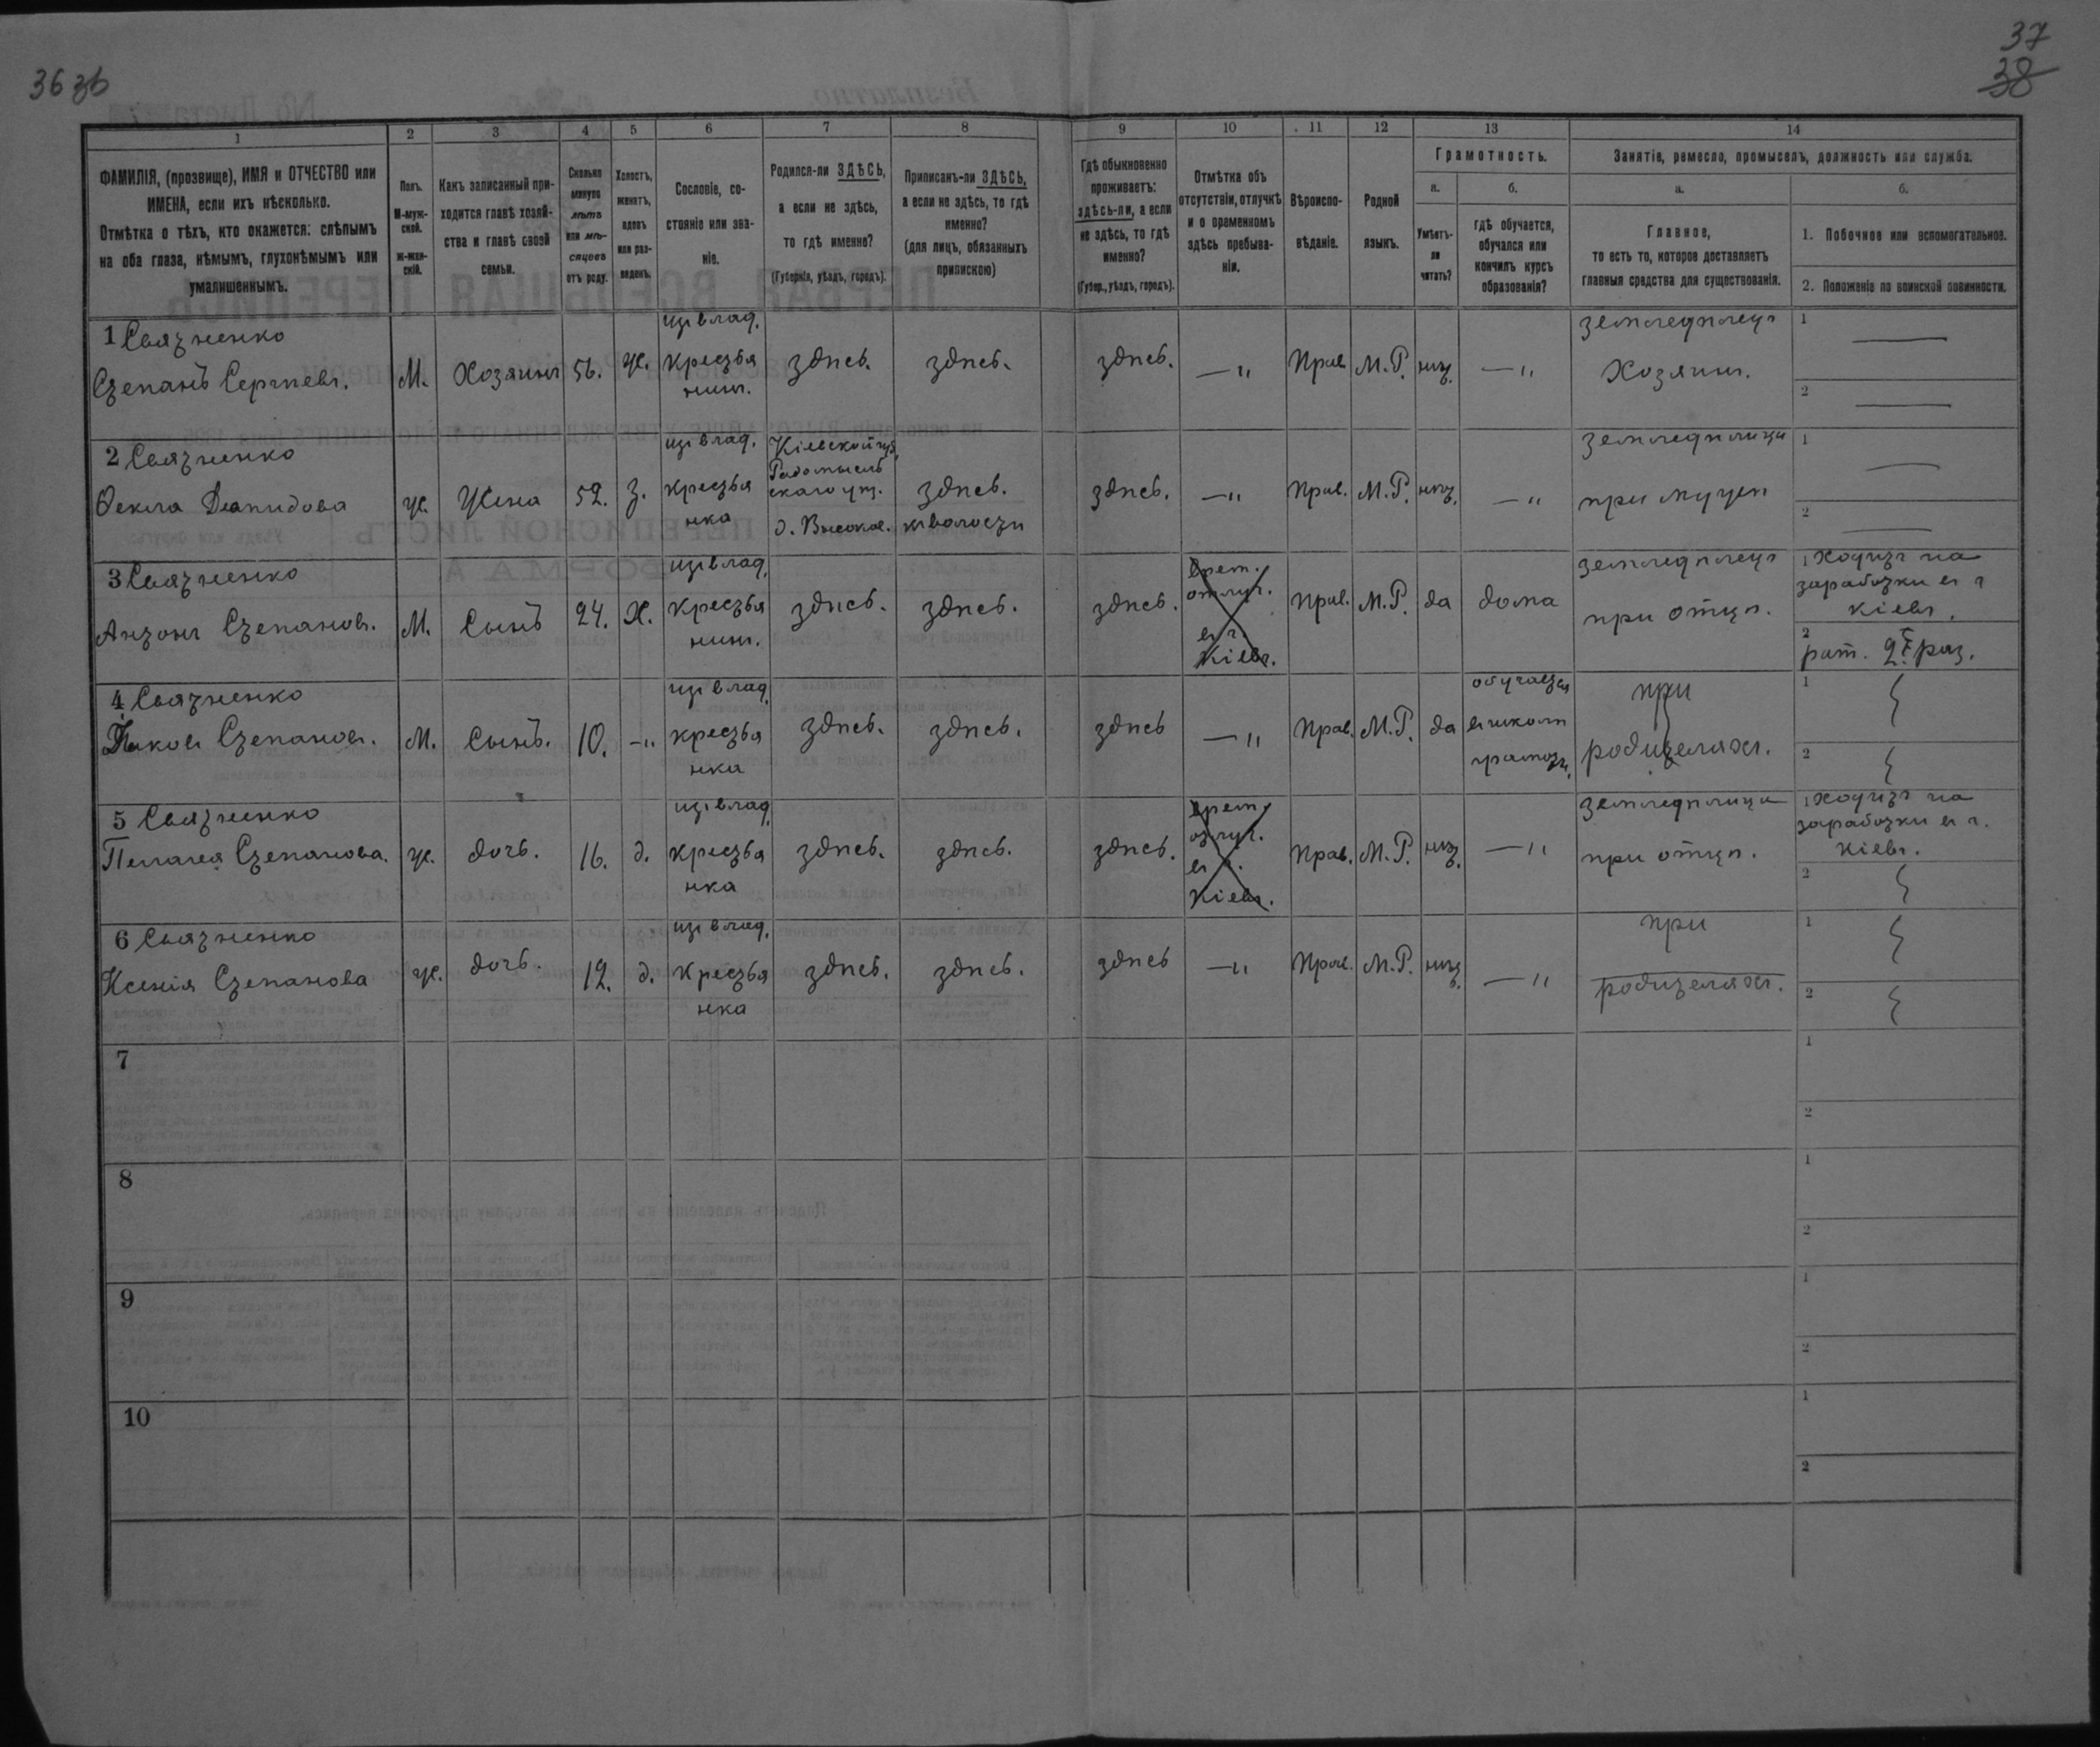 36 зв
37
38
1
2
3
4
5
6
7
8
9
10
11
12
13
14
ФАМИЛІЯ, (прозвище), ИМЯ и ОТЧЕСТВО или
ИМЕНА, если ихъ нѣсколько.
Отмѣтка о тѣхъ, кто окажется: слѣпымъ
на оба глаза, нѣмымъ, глухонѣмымъ или
умалишеннымъ.
Полъ.
М-муж-
ской.
ж-жен-
скій.
Какъ записанный при-
ходится главѣ хозяй-
ства и главѣ своей
семьи.
Сколько
минуло
лѣтъ
или мѣ-
сяцевъ
отъ роду.
Холостъ,
женатъ,
вдовъ
или раз-
веденъ.
Сословіе, со-
стояніе или зва-
ніе.
Родился-ли ЗДѢСЬ,
а если не здѣсь,
то гдѣ именно?
(Губернія, уѣздъ, городъ).
Приписанъ-ли ЗДѢСЬ,
а если не здѣсь, то гдѣ
именно?
(для лицъ, обязанныхъ
припискою)
Гдѣ обыкновенно
проживаетъ:
здѣсь-ли, а если
не здѣсь, то гдѣ
именно?
(Губер., уѣздъ, городъ).
Отмѣтка объ
отсутствіи, отлучкѣ
и о временномъ
здѣсь пребыва-
ніи.
Вѣроиспо-
вѣданіе.
Родной
языкъ.
Грамотность.
а.
Умѣетъ-
ли
читать?
б.
гдѣ обучается,
обучался или
кончилъ курсъ
образованія?
Занятіе, ремесло, промыселъ, должность или служба.
а.
Главное,
то есть то, которое доставляетъ
главныя средства для существованія.
б.
1. Побочное или вспомогательное.
2. Положеніе по воинской повинности.
1 Связненко
Степанъ Сергѣевъ.
М.
Хозяинъ
56.
ж.
изъ влад.
крестья
нинъ.
здѣсь.
здѣсь.
здѣсь.
— "
Прав
М.Р.
нѣт.
— "
земледѣлецъ
Хозяинъ.
1
2
2 Связненко
Ѳекла Демидова
ж.
Жена
52.
з.
изъ влад.
крестья
нка
Кіевской губ.
Радомысль
скаго уѣз.
д. Высокое.
здѣсь.
къ волости
здѣсь.
— "
Прав.
М.Р.
нѣт.
— "
земледѣлица
при мужѣ
1
2
3 Связненко
Антонъ Степановъ.
М.
Сынъ
24.
Х.
изъ влад.
крестья
нинъ.
здѣсь.
здѣсь.
здѣсь.
врем.
отлуч.
въ г.
Кіевъ.
Прав.
М.Р.
да
дома
земледѣлецъ
при отцѣ.
1 Ходитъ на
заработки въ г
Кіевъ.
2
рат. 2 раз.
4 Связненко
Яковъ Степановъ.
М.
Сынъ.
10.
— "
изъ влад.
крестья
нка
здѣсь.
здѣсь.
здѣсь
— "
Прав.
М.Р.
да
обучается
въ школѣ
грамоты.
при
родителяхъ.
1
2
5 Связненко
Пелагея Степанова.
ж.
дочь.
16.
д.
изъ влад.
крестья
нка
здѣсь.
здѣсь.
здѣсь.
врем.
отлуч.
въ г.
Кіевъ.
Прав.
М.Р.
нѣт.
— "
земледѣлица
при отцѣ.
1 Ходитъ на
заработки въ г.
Кіевъ.
2
6 Связненко
Ксенія Степанова
ж.
дочь.
12.
д.
изъ влад.
крестья
нка
здѣсь.
здѣсь.
здѣсь
— "
Прав.
М.Р.
нѣт.
— "
при
родителяхъ.
1
2
7
1
2
8
1
2
9
1
2
10
1
2